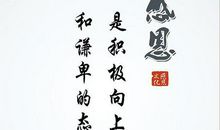 感恩
是积极向上
和谦卑的态